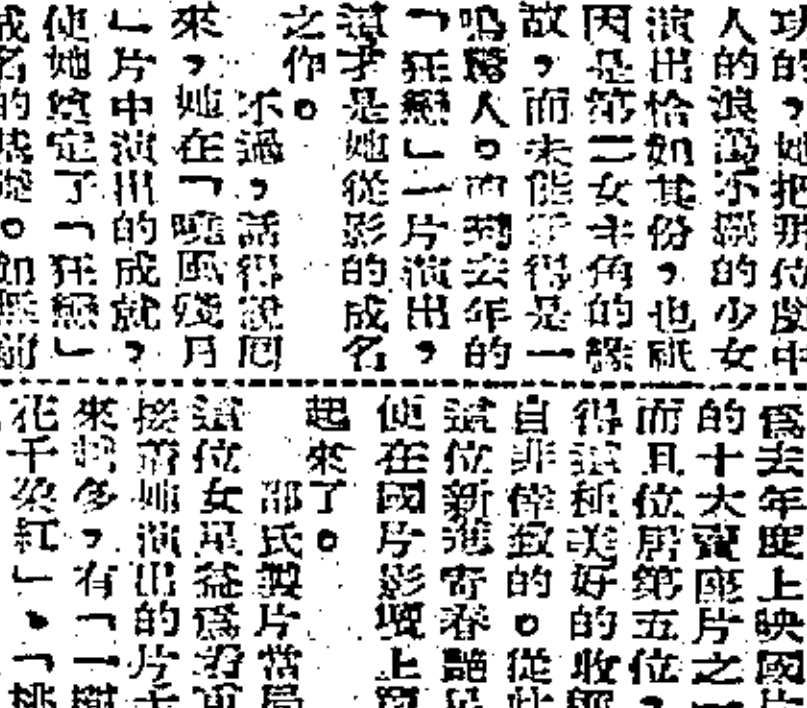 功的，她把那位戲中
人的浪蕩不羈的少女
演出恰如其份，也祇
因是第二女主角的緣
故，而未能算得是一
鳴驚人。直到去年的
「狂戀」一片演出，
這才是她從影的成名
之作。
不過，話得說回
來，她在「曉風殘月
」片中演出的成就，
使她奠定了「狂戀」
成名的基礎。如無前
為去年度上映國片
的十大賣座片之一
而且位居第五位，
得這種美好的收穫
自非倖致的。從此
這位新進寄春艷星
便在國片影壇上竄
起來了。
邵氏製片當局
這位女星益為看重
接着她演出的片子
來得多，有「一樹
花千朵紅」、「桃